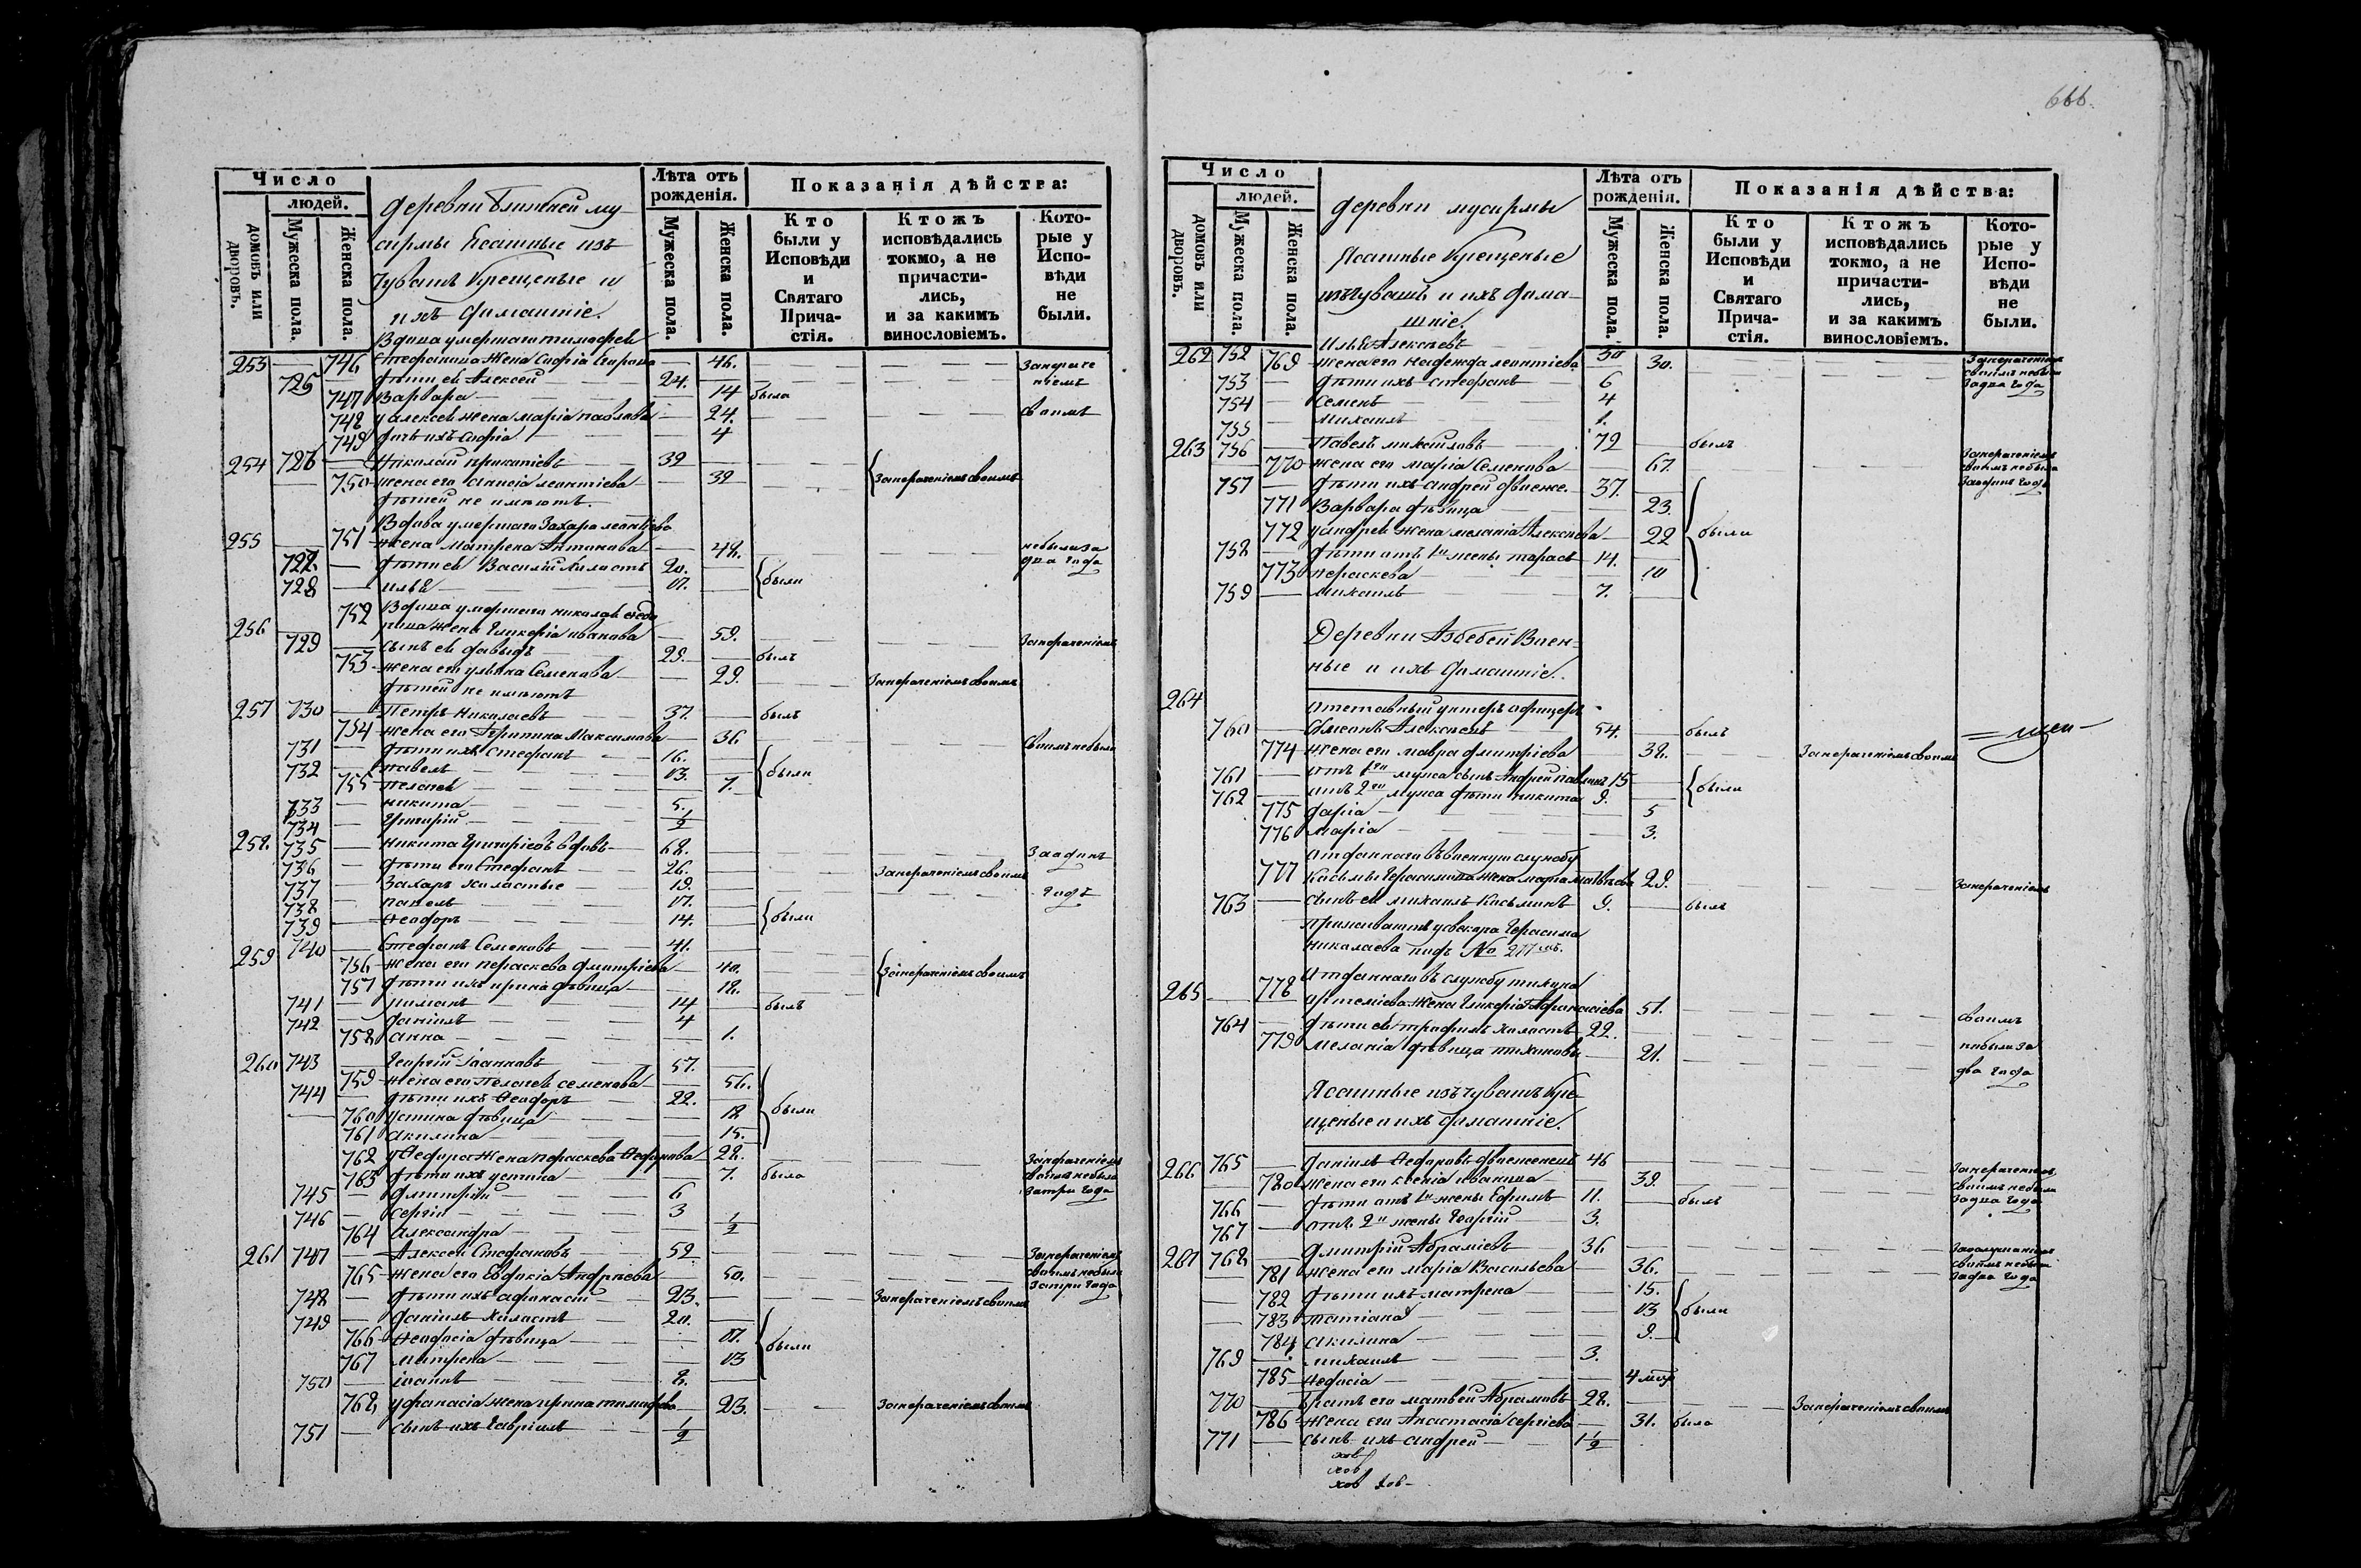 666.
Число
людей.
домовъ или дворовъ.
Мужеска пола.
Женска пола.
деревни Ближней му-
сирмы Ясашные изъ
Чувашъ Крещеные и
ихъ домашніе.
Лѣта отъ рожденія.
Мужеска пола.
Женска пола.
Показанія дѣйства:
Кто были у Исповѣди и Святаго Причастія.
Ктожъ исповѣдались токмо, а не причастились, и за какимъ винословіемъ.
Которые у Исповѣди не были.
Вдова умершаго тимофея
253 — 746 Стефанова жена Софія 46.
725 дѣти ея Алексей 24.
747 Варвара 14 была
748 у алексея жена марія павлова 24. своимъ
749 дочь ихъ софія 4
254 726 Николай прокопіевъ 39
750 жена его леонтіева 39 Занераченіемъ своимъ
дѣтей не имѣютъ.
Вдова умершаго Захара леонтіева
255 751 жена матрена Антонова 48. небыли за два года
727. дѣти ея Василій холостъ 20.
728 илья 17. были
752 Вдова умершаго николая
256 жена гликерія иванова 59. Занераченіемъ
729 сынъ ея давыдъ 29. былъ
753 жена его ульяна Семенова 29. Занераченіемъ своимъ
дѣтей не имѣютъ
257 730 Петръ николаевъ 37. былъ
754 жена его Максимова 36 Своимъ небыли
731 дѣти ихъ Стефанъ 16.
732 павелъ 13. были
755 пелагея 7.
733 никита 5.
734 григорій 1/2
258. 735 никита григоріевъ вдовъ 68. За одинъ
736 дѣти его Стефанъ 26. Занераченіемъ своимъ
737 Захаръ холостые 19. годъ
738 павелъ 17.
739 Ѳеодоръ 14. были
259 740 Стефанъ Семеновъ 41.
756 жена его пераскева дмитріева 40. Занераченіемъ своимъ
757 дѣти ихъ ирина дѣвица 18.
741 романъ 14 былъ
742 даніилъ 4
758 анна 1.
260 743 Георгій Іоанновъ 57.
759 жена его пелагея семенова 56.
744 дѣти ихъ Ѳеодоръ 22.
760 устина дѣвица 18 были
761 акилина 15.
762 у Ѳедора жена пераскева 28. Занераченіемъ
763 дѣти ихъ устина 7. была своимъ небыла
745 дмитрій 6 за три года
746 сергій 3
764 александра 1/2
261 747 Алексей Стефановъ 52 Занераченіемъ
765 жена его Евдокія Андреева 50. своимъ небыли за три года
748 дѣти ихъ афанасій 23. Занераченіемъ своимъ
749 даніилъ холостъ 20.
766 Ѳеодосія дѣвица 17. были
767 матрена 13
750 іоаннъ 8.
768 у фанасія жена ирина 23. Занераченіемъ своимъ
751 сынъ ихъ гавріилъ 1/2
Число
людей.
домовъ или дворовъ.
Мужеска пола.
Женска пола.
деревни мусирмы
Ясашные Крещеные
изъ чувашъ и ихъ дома-
шніе.
Лѣта отъ рожденія.
Мужеска пола.
Женска пола.
Показанія дѣйства:
Кто были у Исповѣди и Святаго Причастія.
Ктожъ исповѣдались токмо, а не причастились, и за какимъ винословіемъ.
Которые у Исповѣди не были.
262 752 Илья Алексеевъ 30 Занераченіемъ
769 жена его надежда леонтіева 30. своимъ небыли
753 дѣти ихъ стефанъ 6 за два года
754 семенъ 4
755 михаилъ 1.
263 756 Павелъ михайловъ 72 былъ
770 жена его марія Семенова 67. Занераченіемъ своимъ небыла за одинъ годъ
757 дѣти ихъ андрей двоеже. 37.
771 Варвара дѣвица 23.
772 у андрея жена меланія Алексеева 22 были
758 дѣти отъ 1й жены тарасъ 14.
773 пераскева 10
759 михаилъ 7.
Деревни Азбебей Воен-
ные и ихъ домашніе.
264 отставный унтеръ офицеръ
760 Алексеевъ 54. былъ
774 жена его мавра дмитріева 38. Занераченіемъ своимъ
761 отъ 1го мужа сынъ Андрей 15
762 отъ 2го мужа дѣти никита 9. были
775 дарія 5
776 марія 3.
отданнаго въ военную службу
777 Касьмы герасимова жена марѳа 29. Занераченіемъ
763 сынъ ея михаилъ Касьминъ 9. былъ
Проживаютъ у свекора герасима
николаева подъ No
отданнаго въ службу
265 778 жена гликерія Афанасіева 51. своимъ
764 дѣти ея трофимъ холостъ 22.
779 меланія дѣвица 21. небыли за два года
Ясашные изъ чувашъ Кре-
щеные и ихъ домашніе.
266 765 даніилъ Ѳедоровъ двоеженецъ 46 Занераченіемъ
780 жена его ксенія иванова 39. своимъ небыли
766 дѣти отъ 1й жены Ефимъ 11. былъ за два года
767 отъ 2й жены Георгій 3.
267 768 дмитрій Абрамовъ 36
781 жена его марія Васильева 36. своимъ небыли за два года
782 дѣти ихъ матрена 15.
783 татіана 13 были
784 акилина 9.
769 михаилъ 3.
785 Ѳедосія 4 мѣс
770 братъ его матвей Абрамовъ 28. Занераченіемъ своимъ
786 жена его Анастасія сергіева 31. была
771 сынъ ихъ андрей 1 1/2